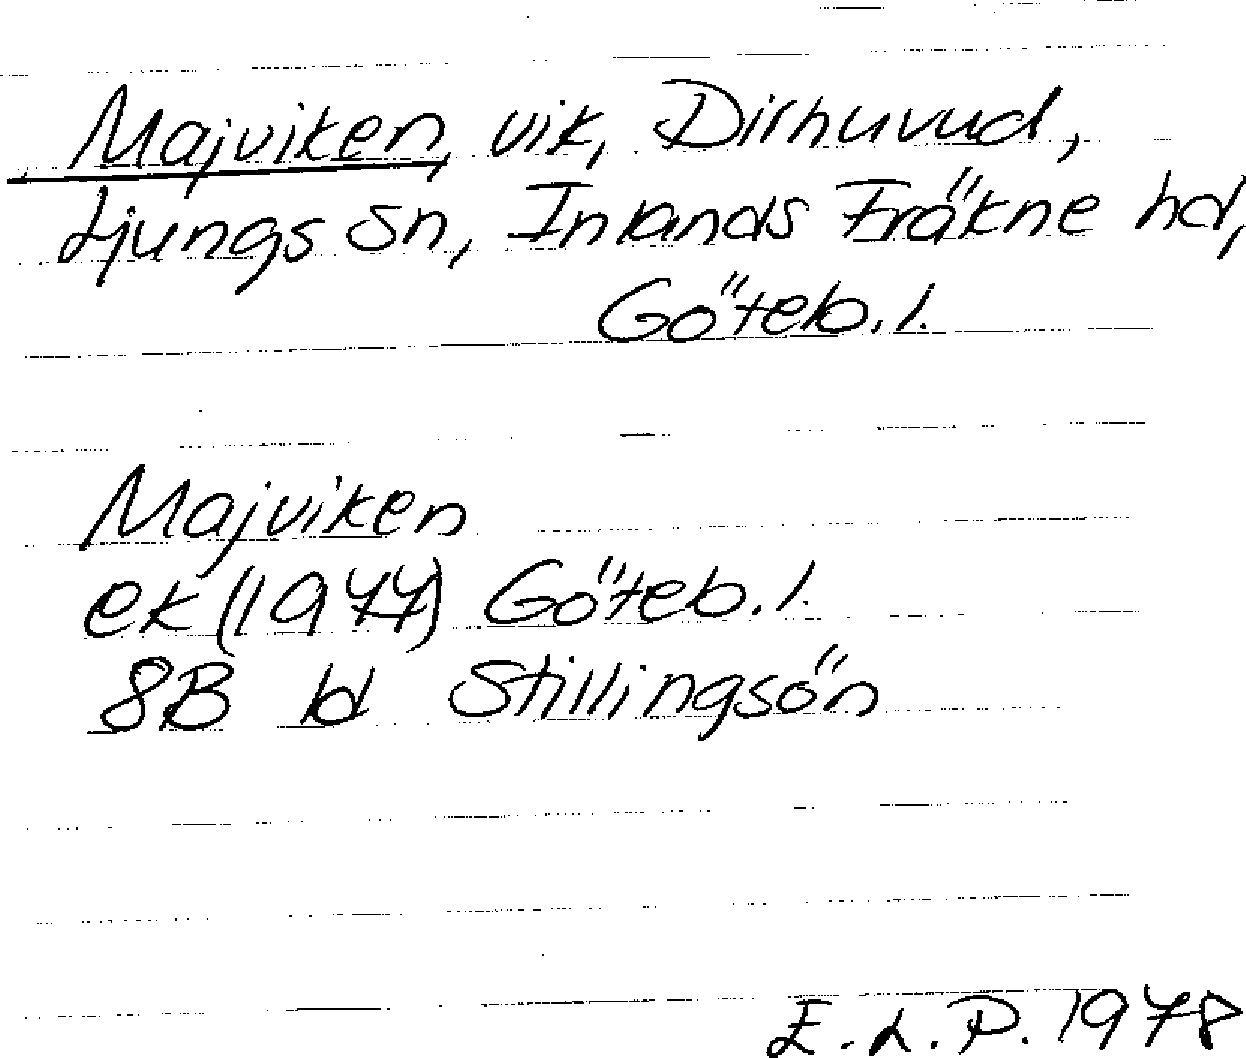 Majviken, vik, Dirhuvud,
Ljungs sn, Inlands Fräkne hd,
Göteb. l.
Majviken
ek (1977) Göteb. l.
8B bl Stillingsön
E. L. P. 1978